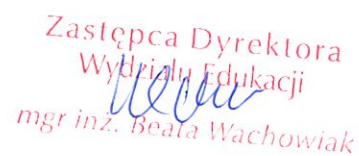 Zastępca Dyrektora
Wydziału Edukacji
mgr inż. Beata Wachowiak